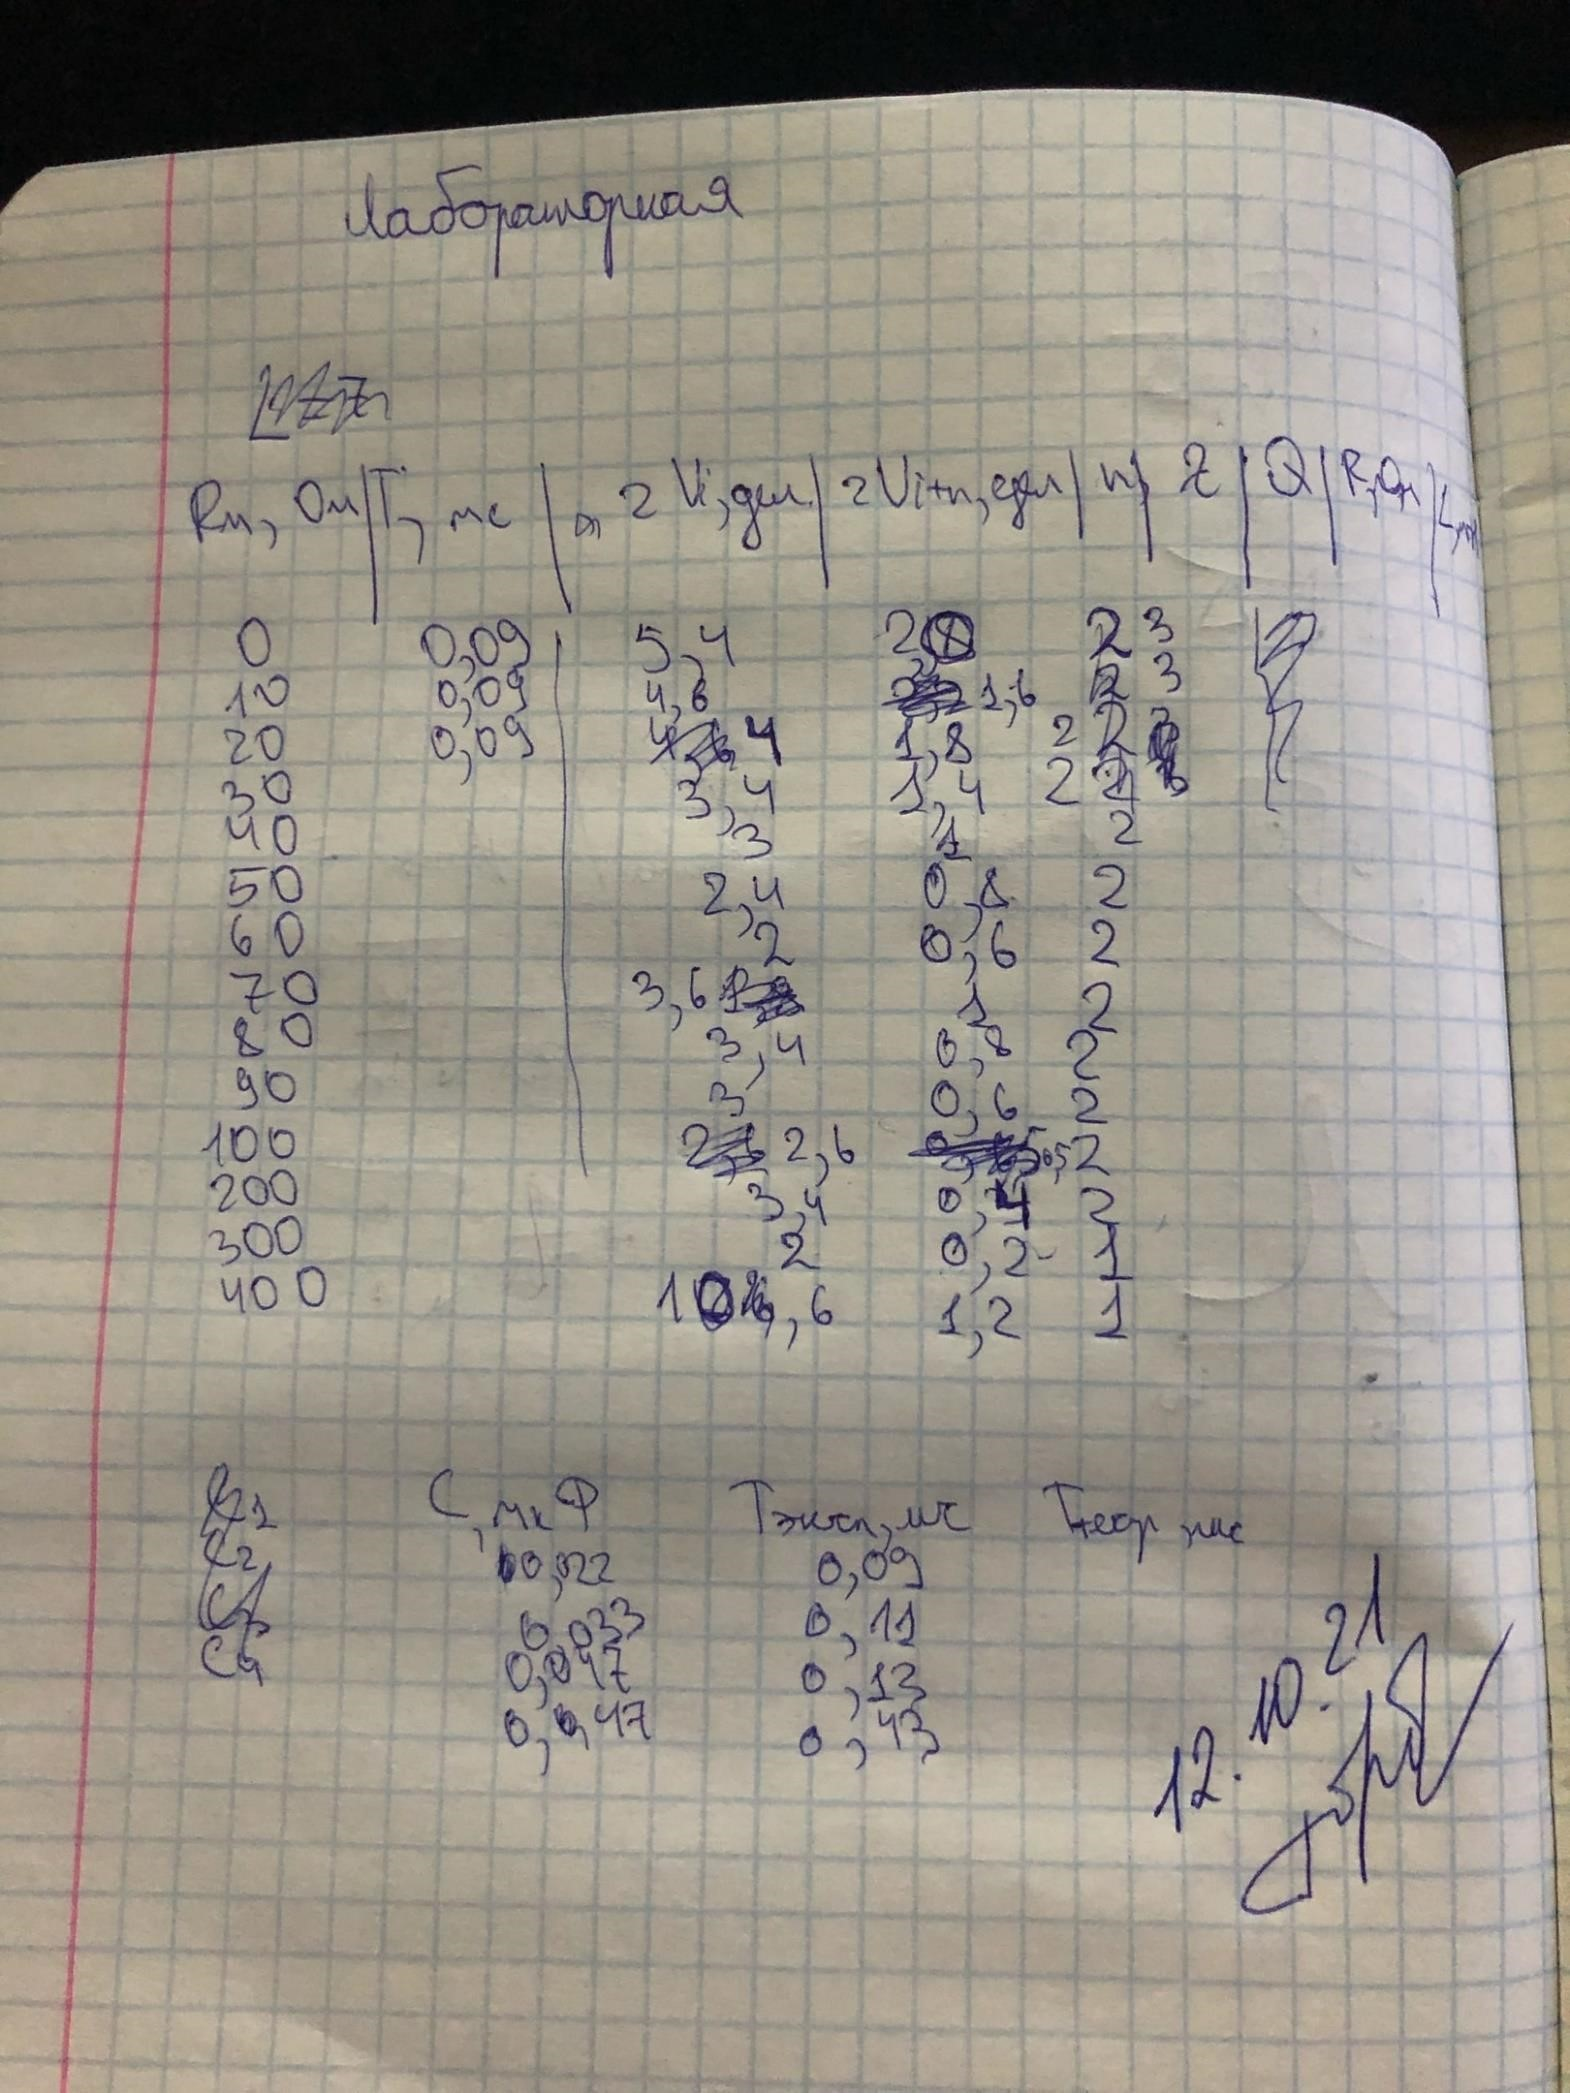 Лабораторная
Rм, Ом | T, мс | 2Vi, дел | 2Vi+n, дел | n | λ | Q | R, Ом | L,
0 0,09 5,4 2 3
10 0,09 4,6 1,6 3
20 0,09 4 1,8 2
30 3,4 1,4 2
40 3 1 2
50 2,4 0,8 2
60 2 0,6 2
70 3,6 1 2
80 3,4 0,8 2
90 3 0,6 2
100 2,6 0,5 2
200 3,4 0,4 2
300 2 0,2 1
400 1,2 1
C, мкФ Tэксп, мс Tтеор, мс
0,022 0,09
C2 0,033 0,11
C4 0,047 0,13
0,47 0,43
12.10.21